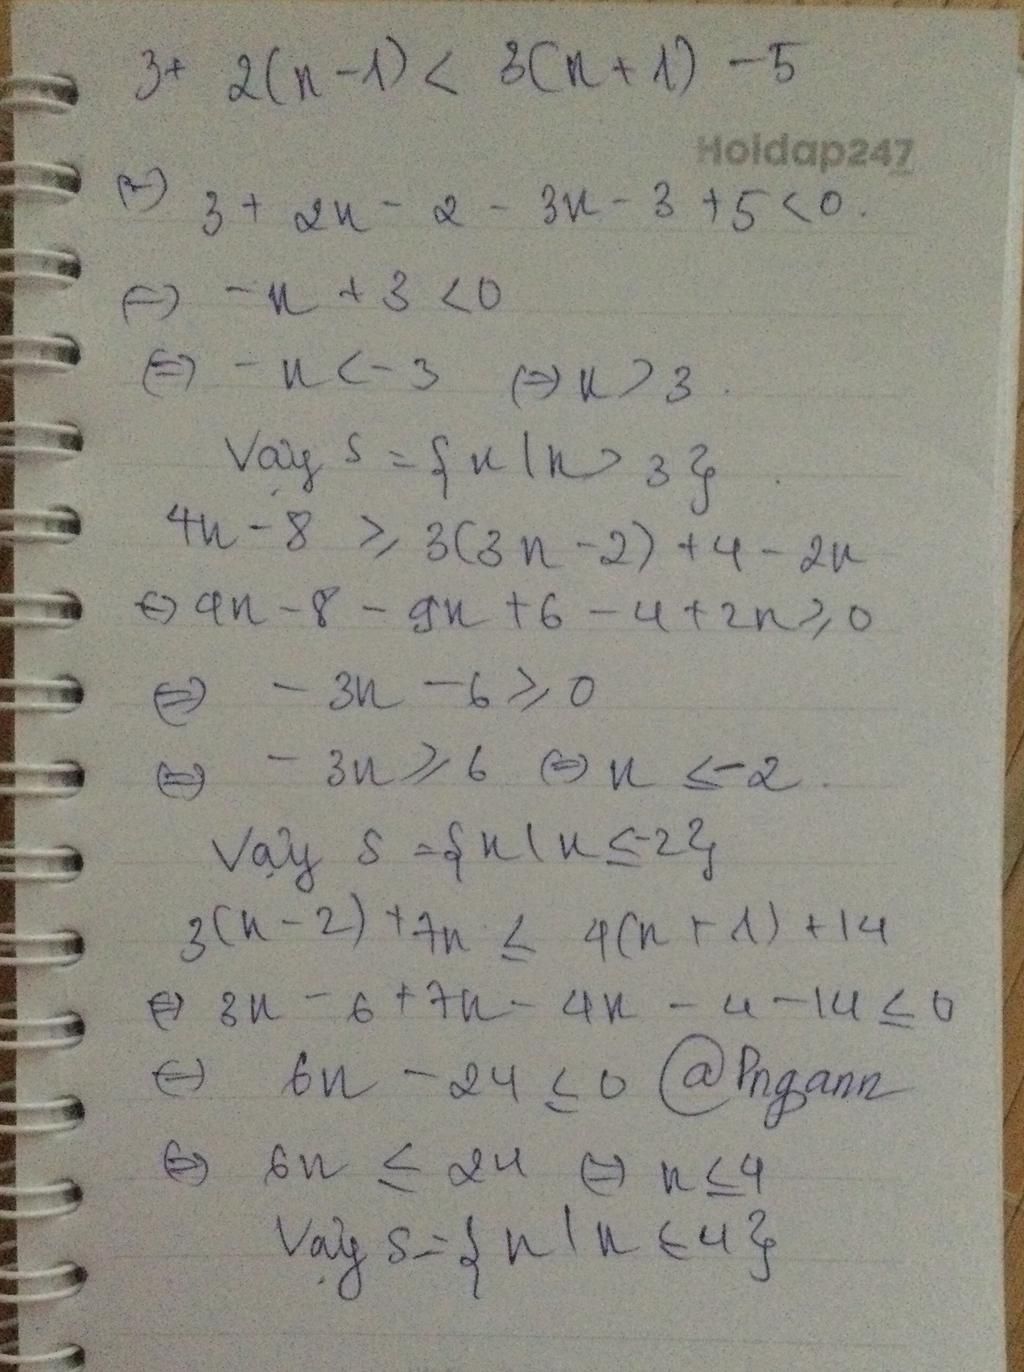 3+ 2(x-1) < 3(x+1) -5
Hoidap247
(=) 3+2x-2-3x-3+5<0.
(=) -x+3<0
(=) -x<-3 (=) x>3.
Vậy S={x|x>3}
4x-8 ≥ 3(3x-2)+4-2x
(=) 4x-8-9x+6-4+2x≥0
(=) -3x-6≥0
(=) -3x≥6 (=) x≤-2.
Vậy S={x|x≤-2}
3(x-2)+7x ≤ 4(x+1)+14
(=) 3x-6+7x-4x-4-14≤0
(=) 6x-24≤0 @Pngann
(=) 6x ≤ 24 (=) x≤4
Vậy S={x|x≤4}